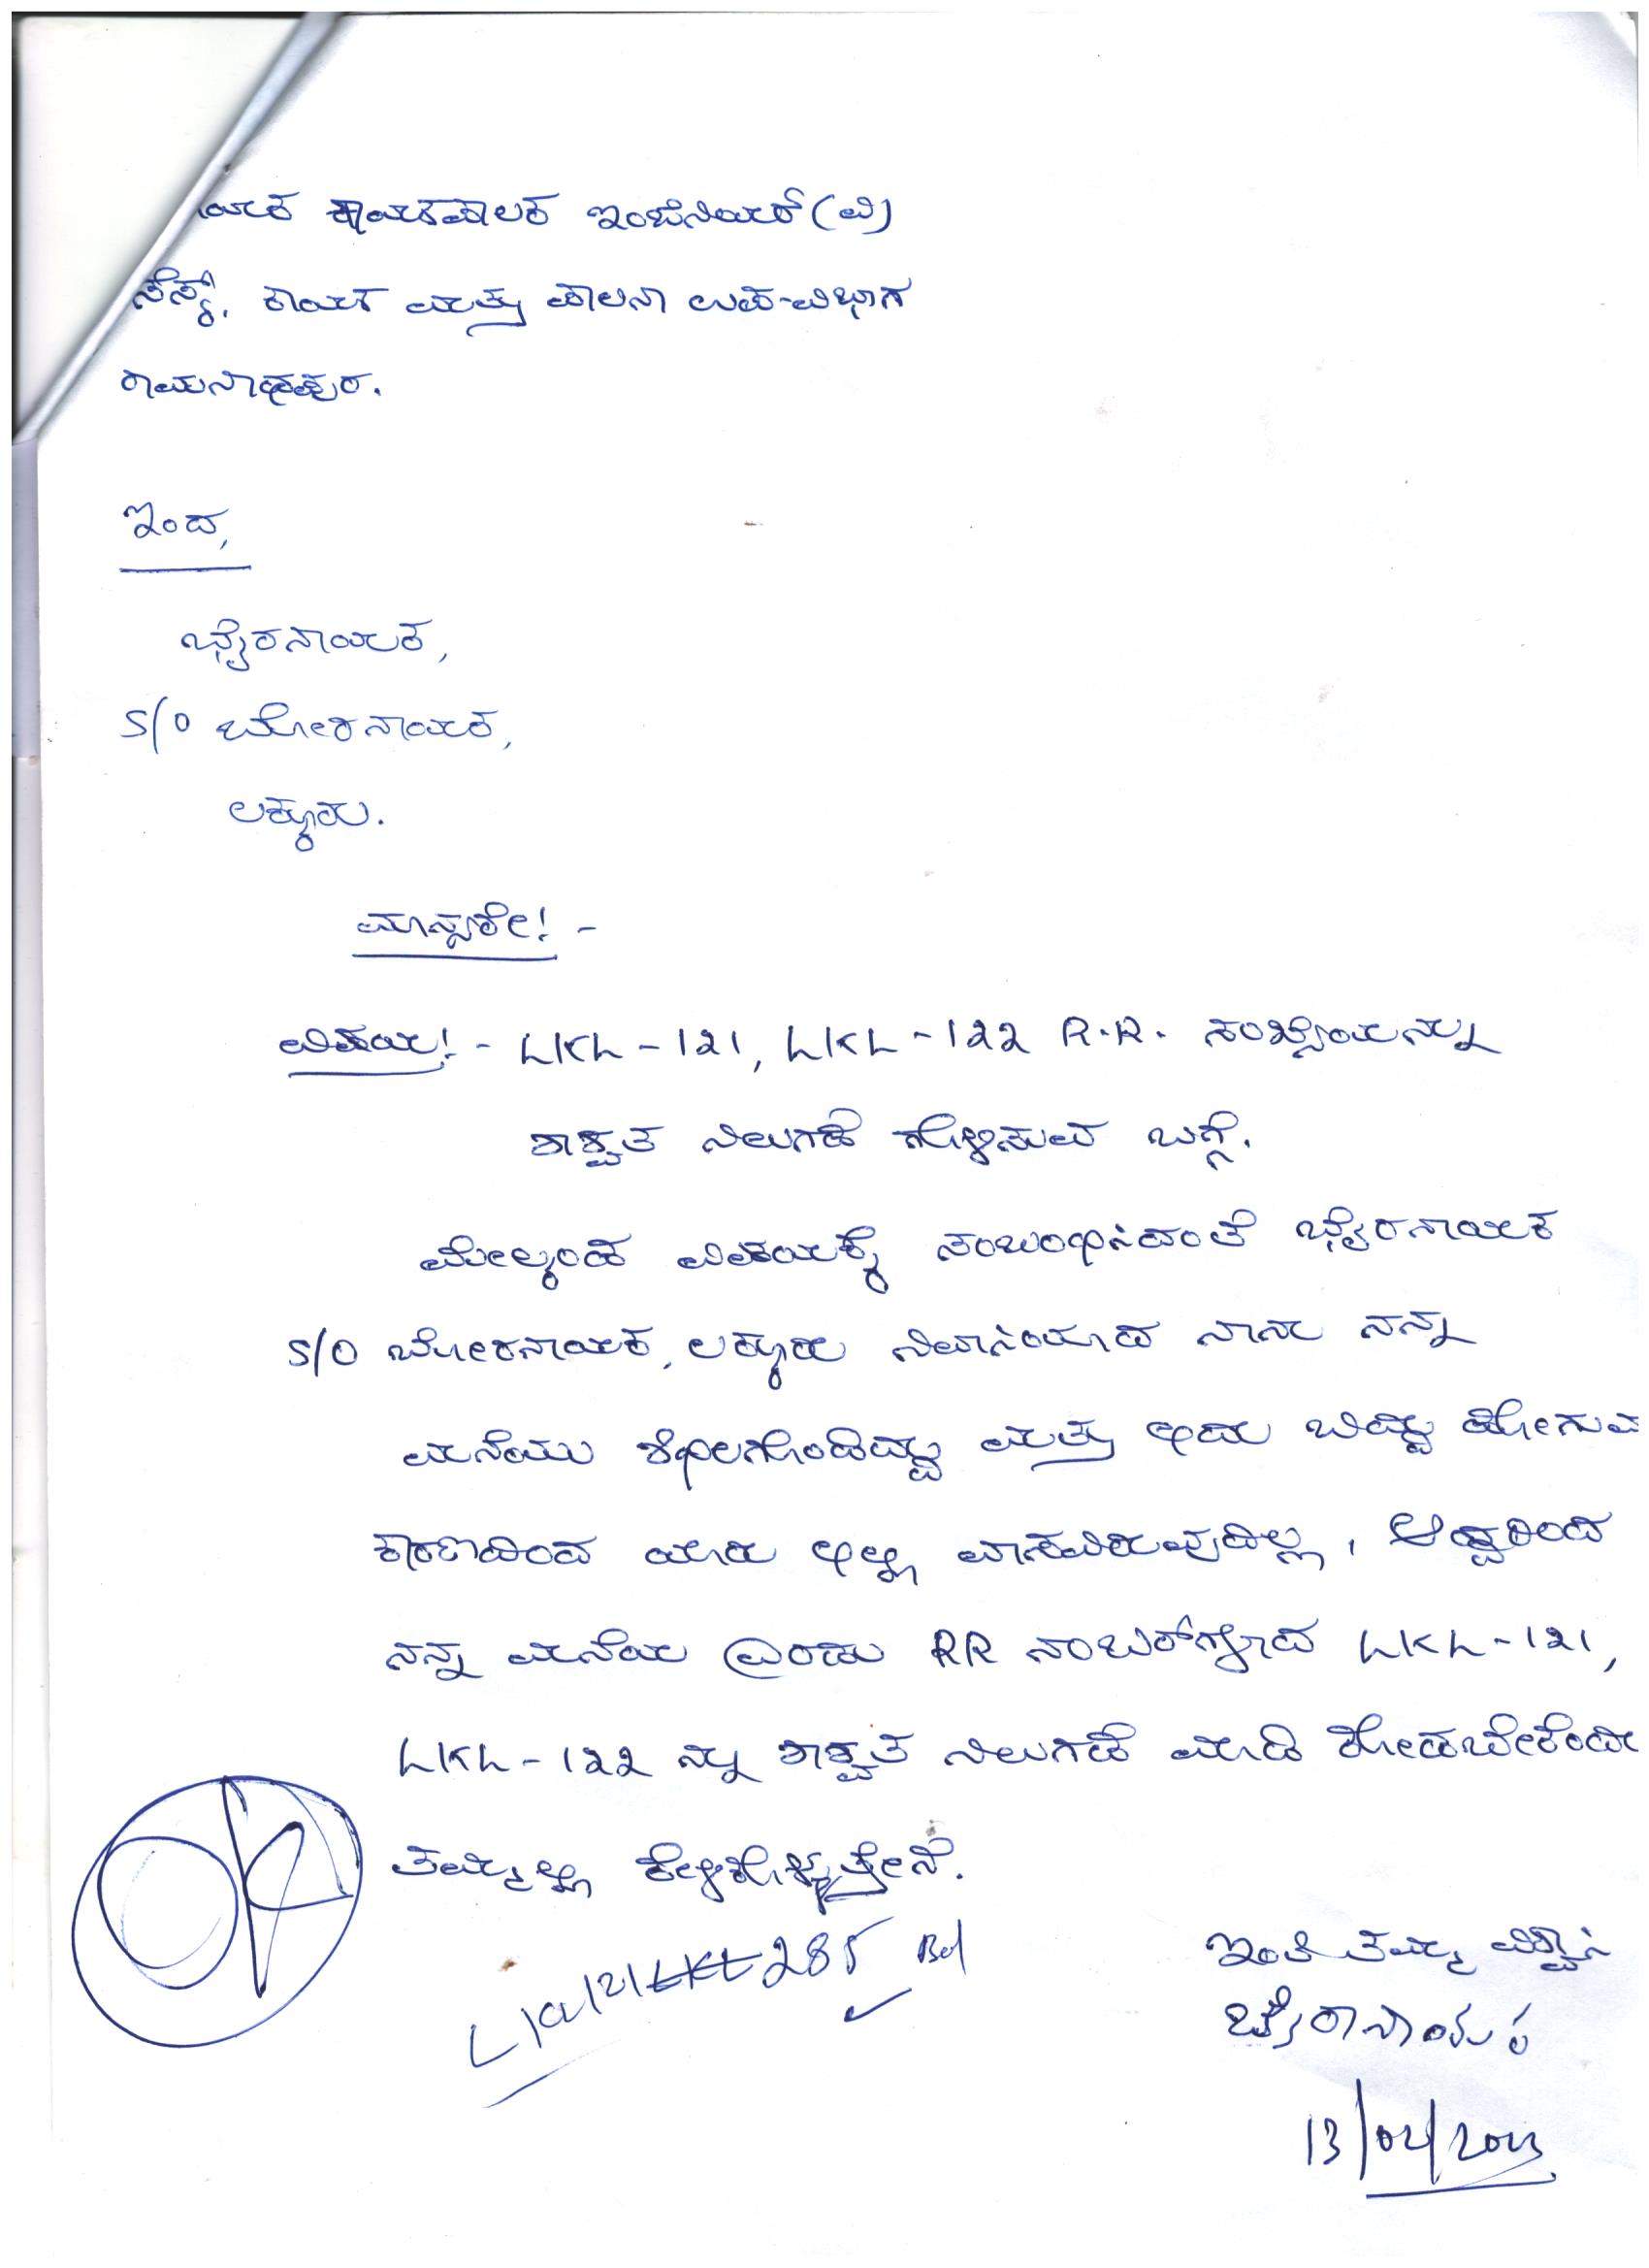 ಯಕ ಕಾರ್ಯಪಾಲಕ ಇಂಜಿನಿಯರ್ (ವಿ)
ಸೆಸ್ಕ್, ಕಾರ್ಯ ಮತ್ತು ಪಾಲನಾ ಉಪ-ವಿಭಾಗ
ರಾಮನಾಥಪುರ.
ಇಂದ,
ಭೈರನಾಯಕ,
S/O ಬೋರನಾಯಕ,
ಲಕ್ಕೂರು.
ಮಾನ್ಯರೇ! -
ವಿಷಯ! - LKL - 121, LKL - 122 R.R. ಸಂಖ್ಯೆಯನ್ನು
ಶಾಶ್ವತ ನಿಲುಗಡೆ ಗೊಳಿಸುವ ಬಗ್ಗೆ.
ಮೇಲ್ಕಂಡ ವಿಷಯಕ್ಕೆ ಸಂಬಂಧಿಸಿದಂತೆ ಭೈರನಾಯಕ
S/O ಬೋರನಾಯಕ, ಲಕ್ಕೂರು ನಿವಾಸಿಯಾದ ನಾನು ನನ್ನ
ಮನೆಯು ಶಿಥಿಲಗೊಂಡಿದ್ದು ಮತ್ತು ಅದು ಬಿದ್ದು ಹೋಗುವ
ಕಾರಣದಿಂದ ಯಾರು ಅಲ್ಲಿ ವಾಸವಿರುವುದಿಲ್ಲ, ಆದ್ದರಿಂದ
ನನ್ನ ಮನೆಯ ಎರಡು RR ನಂಬರ್‌ಗಳಾದ LKL - 121,
LKL - 122 ನ್ನು ಶಾಶ್ವತ ನಿಲುಗಡೆ ಮಾಡಿ ಕೊಡಬೇಕೆಂದು
ತಮ್ಮಲ್ಲಿ ಕೇಳಿಕೊಳ್ಳುತ್ತೇನೆ.
OK
285
ಇಂತಿ ತಮ್ಮ ವಿಶ್ವಾಸಿ
ಬೈರಾನಾಯಕ
13/02/2023